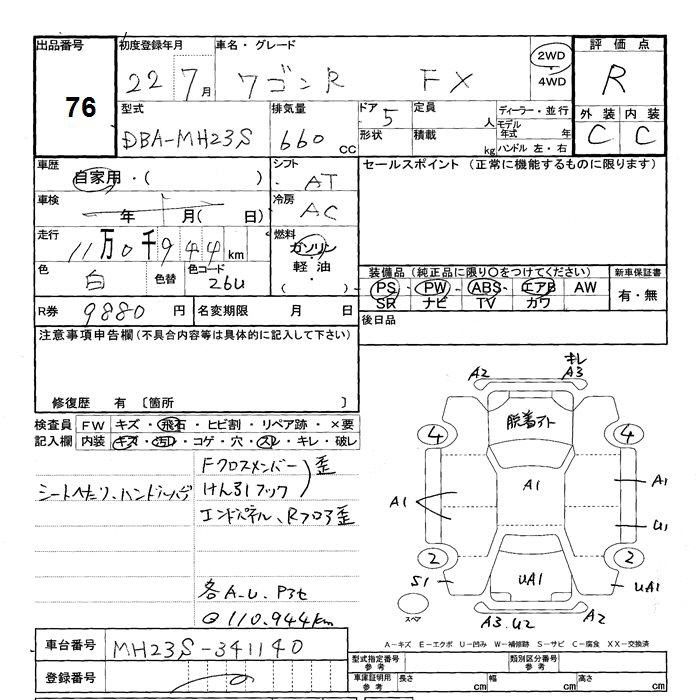 出品番号 初度登録年月 車名・グレード 評価点
76
22 7月 ワゴンR FX 2WD・4WD R
型式 排気量 ドア 5 定員 人 ディーラー・並行 外装 内装
DBA-MH23S 660 CC 形状 積載 kg モデル年式 年 ハンドル 左・右 C C
車歴 シフト セールスポイント (正常に機能するものに限ります)
自家用・( ) AT
車検 年 月( 日) 冷房 AC
走行 11万0千944km 燃料 ガソリン・軽油・( )
色 白 色替 色コード 26U
装備品 (純正品に限り○をつけてください) 新車保証書
PS・PW・ABS・エアB AW 有・無
SR ナビ TV カワ
R券 9880 円 名変期限 月 日 後日品
注意事項申告欄 (不具合内容等は具体的に記入して下さい)
修復歴 有 〔箇所 〕
検査員 FW キズ・飛石・ヒビ割・リペア跡・×要
記入欄 内装 キズ・汚レ・コゲ・穴・スレ・キレ・破レ
シートへたり、ハンドルハゲ
Fクロスメンバー
けん引フック
歪
エンドパネル、Rフロア歪
各A.U.P3セ
@110,944km
A2 キレ A3
脱着アト
4 4
A1 A1 A1
U1
2 2
S1 UA1 UA1
スペア A3.U2 A2
A-キズ E-エクボ U-凹み W-補修跡 S-サビ C-腐食 XX-交換済
車台番号 MH23S-341140
型式指定番号 参考 類別区分番号 参考
登録番号
車庫証明用 参考 長さ cm 幅 cm 高さ cm